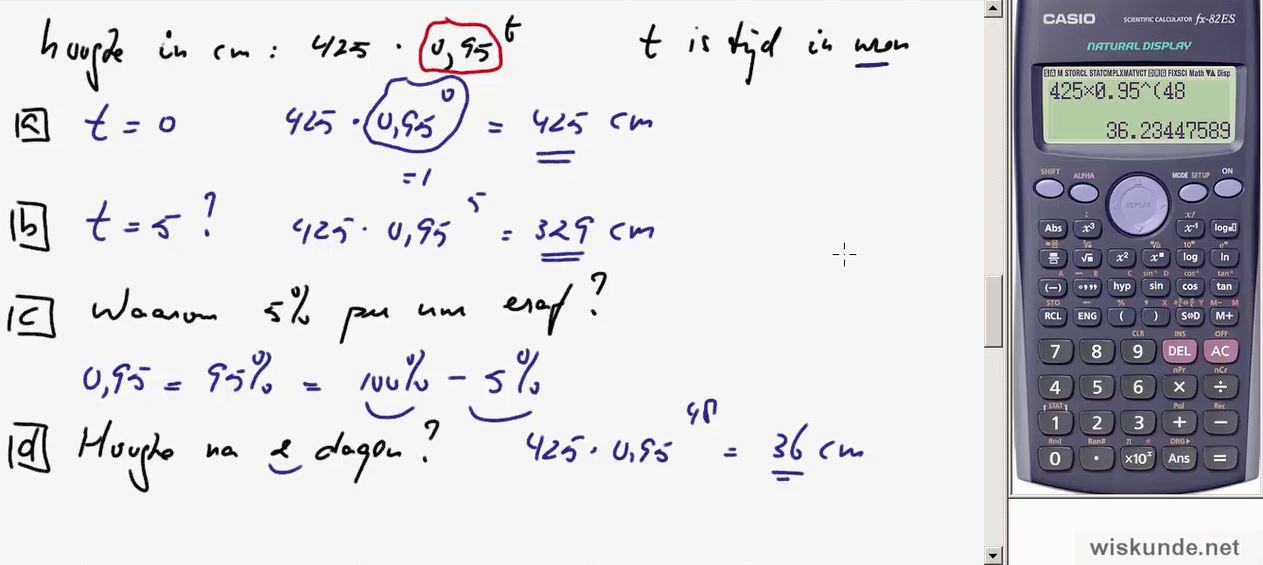 hoogte in cm: 425 · 0,95^t t is tijd in uren
a t = 0 425 · 0,95^0 = 425 cm
= 1
b t = 5 ? 425 · 0,95^5 = 329 cm
c Waarom 5% per uur eraf?
0,95 = 95% = 100% - 5%
d Hoogte na 2 dagen? 425 · 0,95^48 = 36 cm
CASIO SCIENTIFIC CALCULATOR fx-82ES
NATURAL DISPLAY
S A M STORCL STATCMPLXMATVCT D R G FIXSCI Math ▼▲ Disp
425×0.95^(48
36.23447589
SHIFT ALPHA REPLAY MODE SETUP ON
: x!
Abs x³ x⁻¹ log
10ˣ eˣ
√ x² log ln
A B C sin⁻¹ D cos⁻¹ tan⁻¹
(−) °,,, hyp sin cos tan
STO X Y M− M
RCL ENG ( ) S⇔D M+
CLR INS OFF
7 8 9 DEL AC
nPr nCr
4 5 6 × ÷
[STAT] Pol Rec
1 2 3 + −
Rnd Ran# π e DRG▸
0 . ×10ˣ Ans =
wiskunde.net